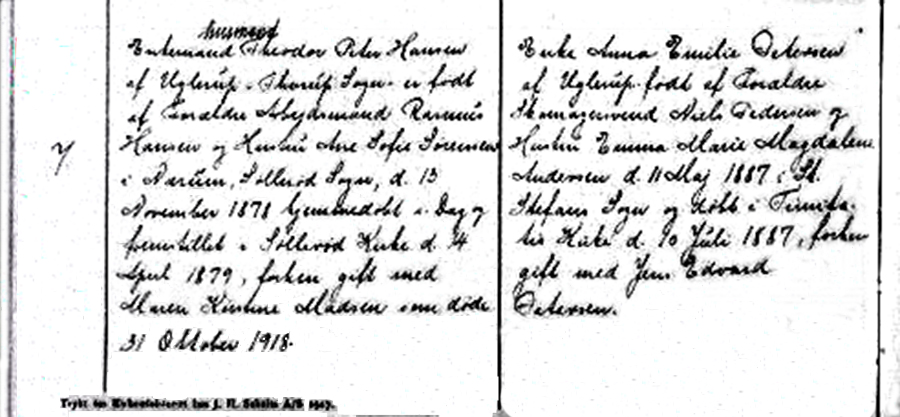 7
husmand
Enkemand Theodor Peter Hansen
af Uglerup, Sogn er født
af Forældre Arbejdsmand Rasmus
Hansen og Hustru Ane Sofie Sørensen
i Søllerød Sogn, d. 13
November 1878 hjemmedøbt s. Dag og
fremstillet i Søllerød Kirke d. 14
April 1879, forhen gift med
Maren Kirstine Madsen som døde
31 Oktober 1918.
Enke Anna Emilie Petersen
af Uglerup født af Forældre
Skomagersvend Niels Pedersen og
Hustru Emma Marie Magdalene
Andersen d. 11 Maj 1887 i St.
Stefans Sogn og døbt i Trinita-
tis Kirke d. 10 Juli 1887, forhen
gift med Jens Edvard
Petersen.
Trykt hos J. H. Schultz A/S